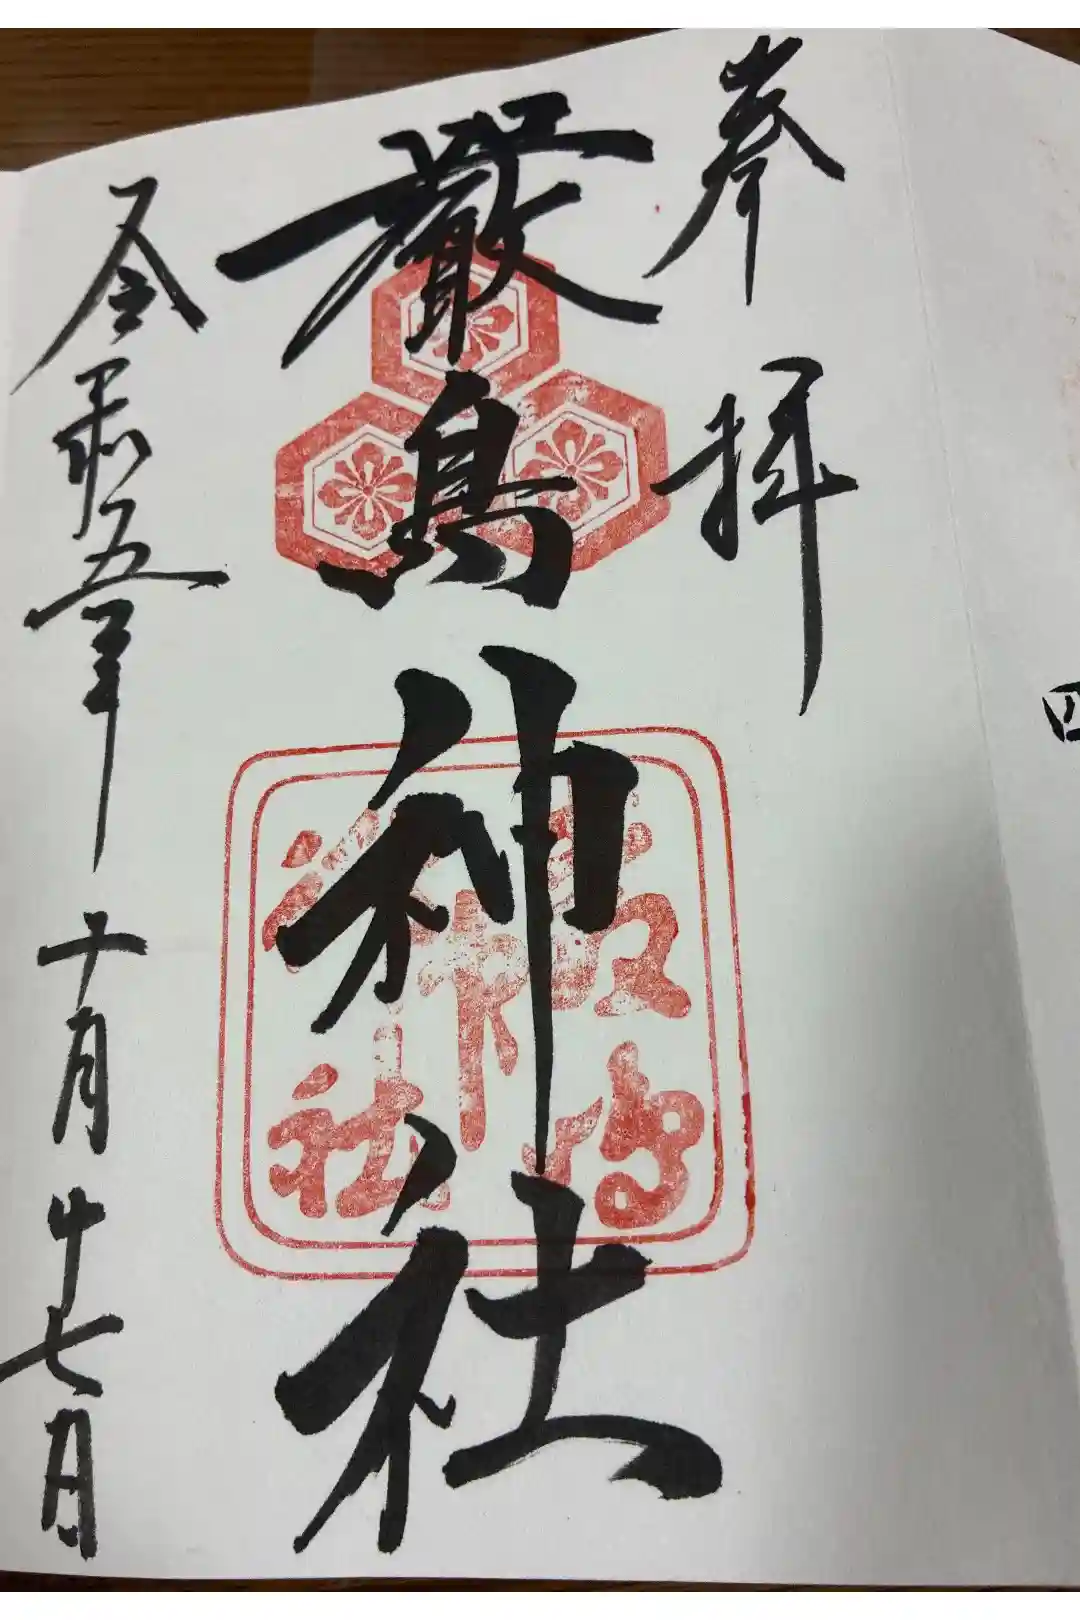 奉拝
嚴島神社
嚴島神社
令和五年十月廿七日
四